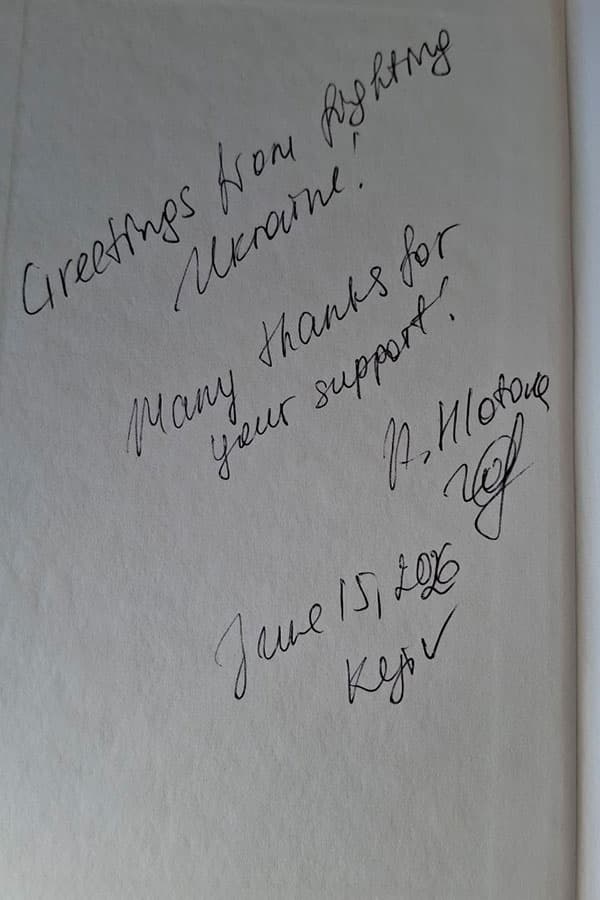 Greetings from fighting
Ukraine!
Many thanks for
your support!
June 15, 2026
Kyiv